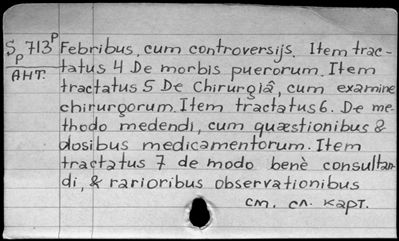 S 713 P Febribus, cum controversijs. Item trac-
P
АНТ. tatus 4 De morbis puerorum. Item
tractatus 5 De Chirurgiâ, cum examine
chirurgorum. Item tractatus 6. De me-
thodo medendi, cum quæstionibus &
dosibus medicamentorum. Item
tractatus 7 de modo benè consultan-
di, & rarioribus observationibus
см. сл. карт.